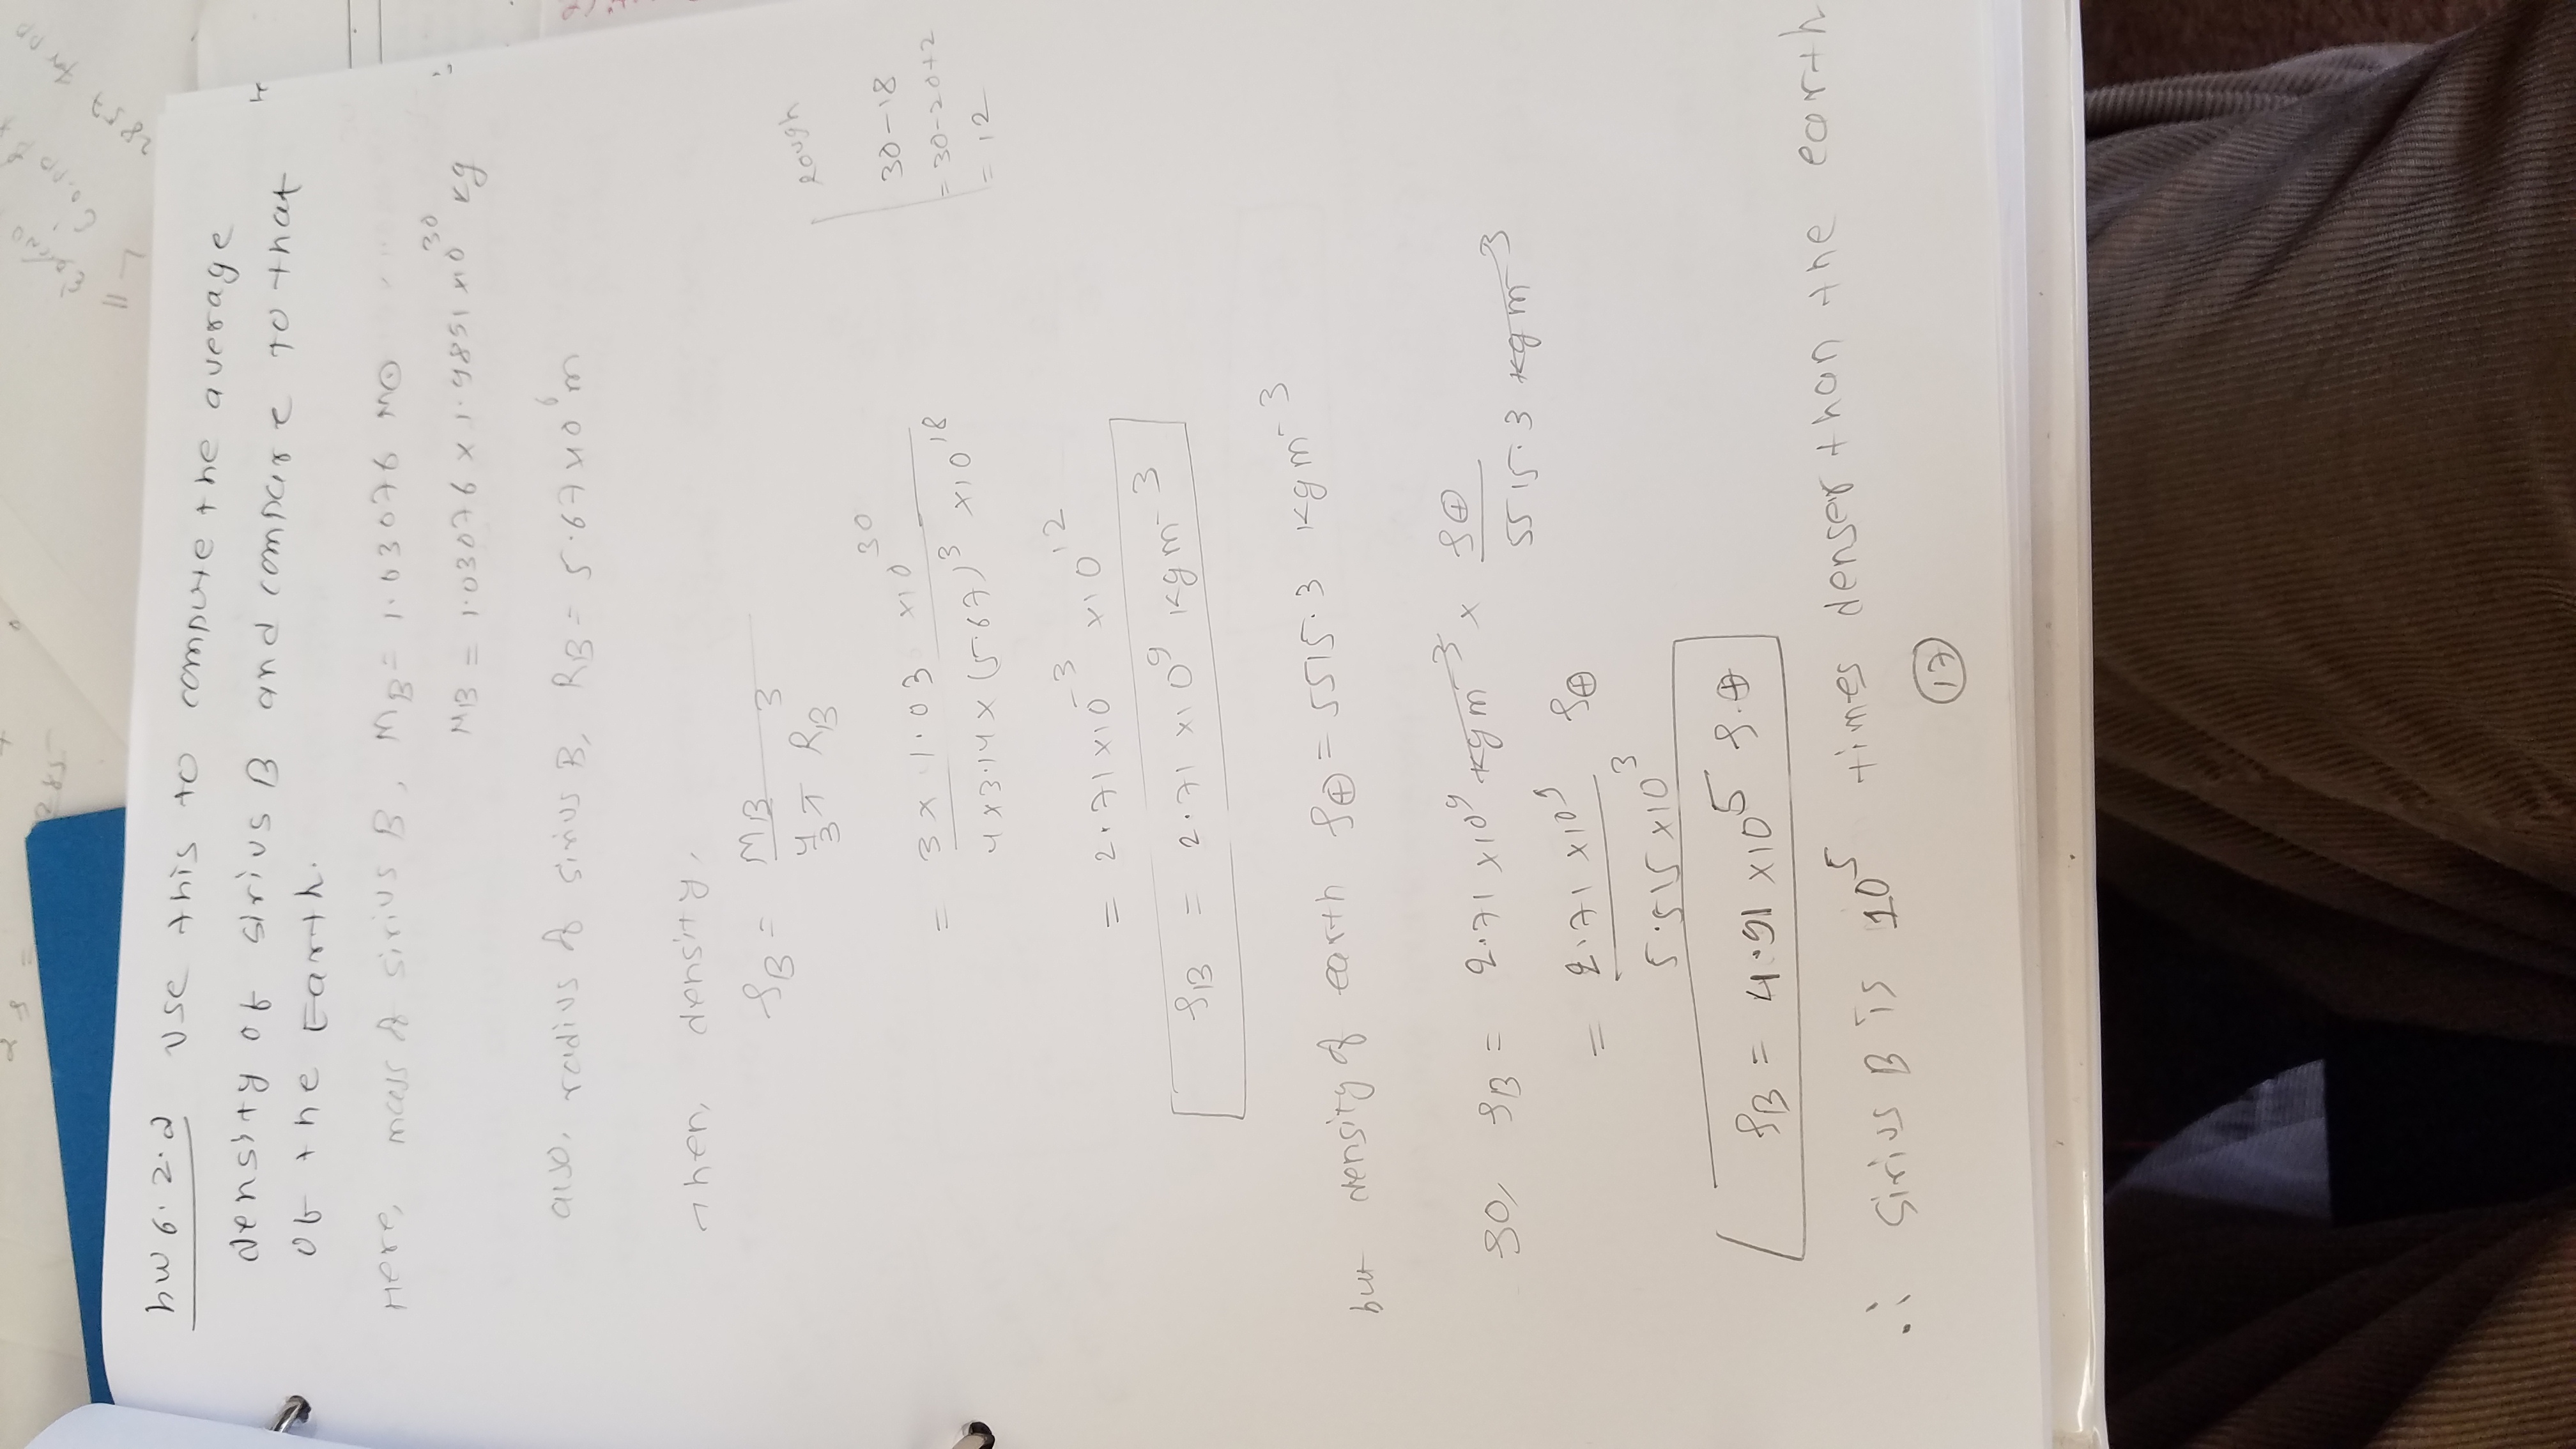 285
2857 For
hw 6.2.2 Use this to compute the average
density of sirius B and compare to that
of the Earth.
Here, mass of sirius B, M_B = 1.03076 M⊙
M_B = 1.03076 × 1.9851 ×10^30 kg
also, radius of sirius B, R_B = 5.67×10^6 m
Then, density,
ρ_B = M_B / (4/3 π R_B^3)
= 3 × 1.03 ×10^30 / (4×3.14× (5.67)^3 ×10^18)
= 2.71×10^-3 ×10^12
ρ_B = 2.71 ×10^9 kgm^-3
Rough
30-18
= 30-20+2
= 12
but density of earth ρ⊕ = 5515.3 kgm^-3
so, ρ_B = 2.71 ×10^9 kgm^-3 × ρ⊕ / 5515.3 kgm^-3
= 2.71 ×10^9 / 5.515×10^3 ρ⊕
ρ_B = 4.91 ×10^5 ρ.⊕
∴ Sirius B is 10^5 times denser than the earth
17